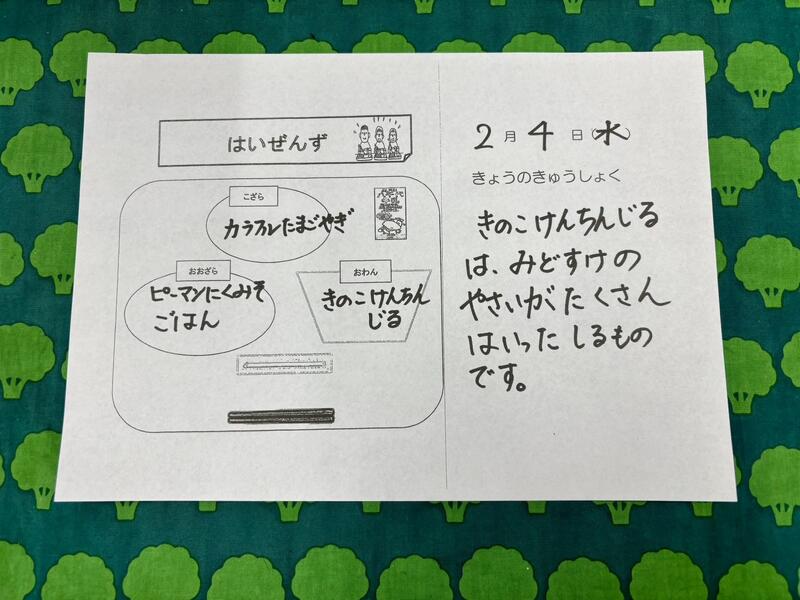 はいぜんず
こざら
カラフルたまごやき
おおざら
ピーマンにくみそ
ごはん
おわん
きのこけんちん
じる
2月4日(水)
きょうのきゅうしょく
きのこけんちんじる
は、みどすけの
やさいがたくさん
はいったしるもの
です。